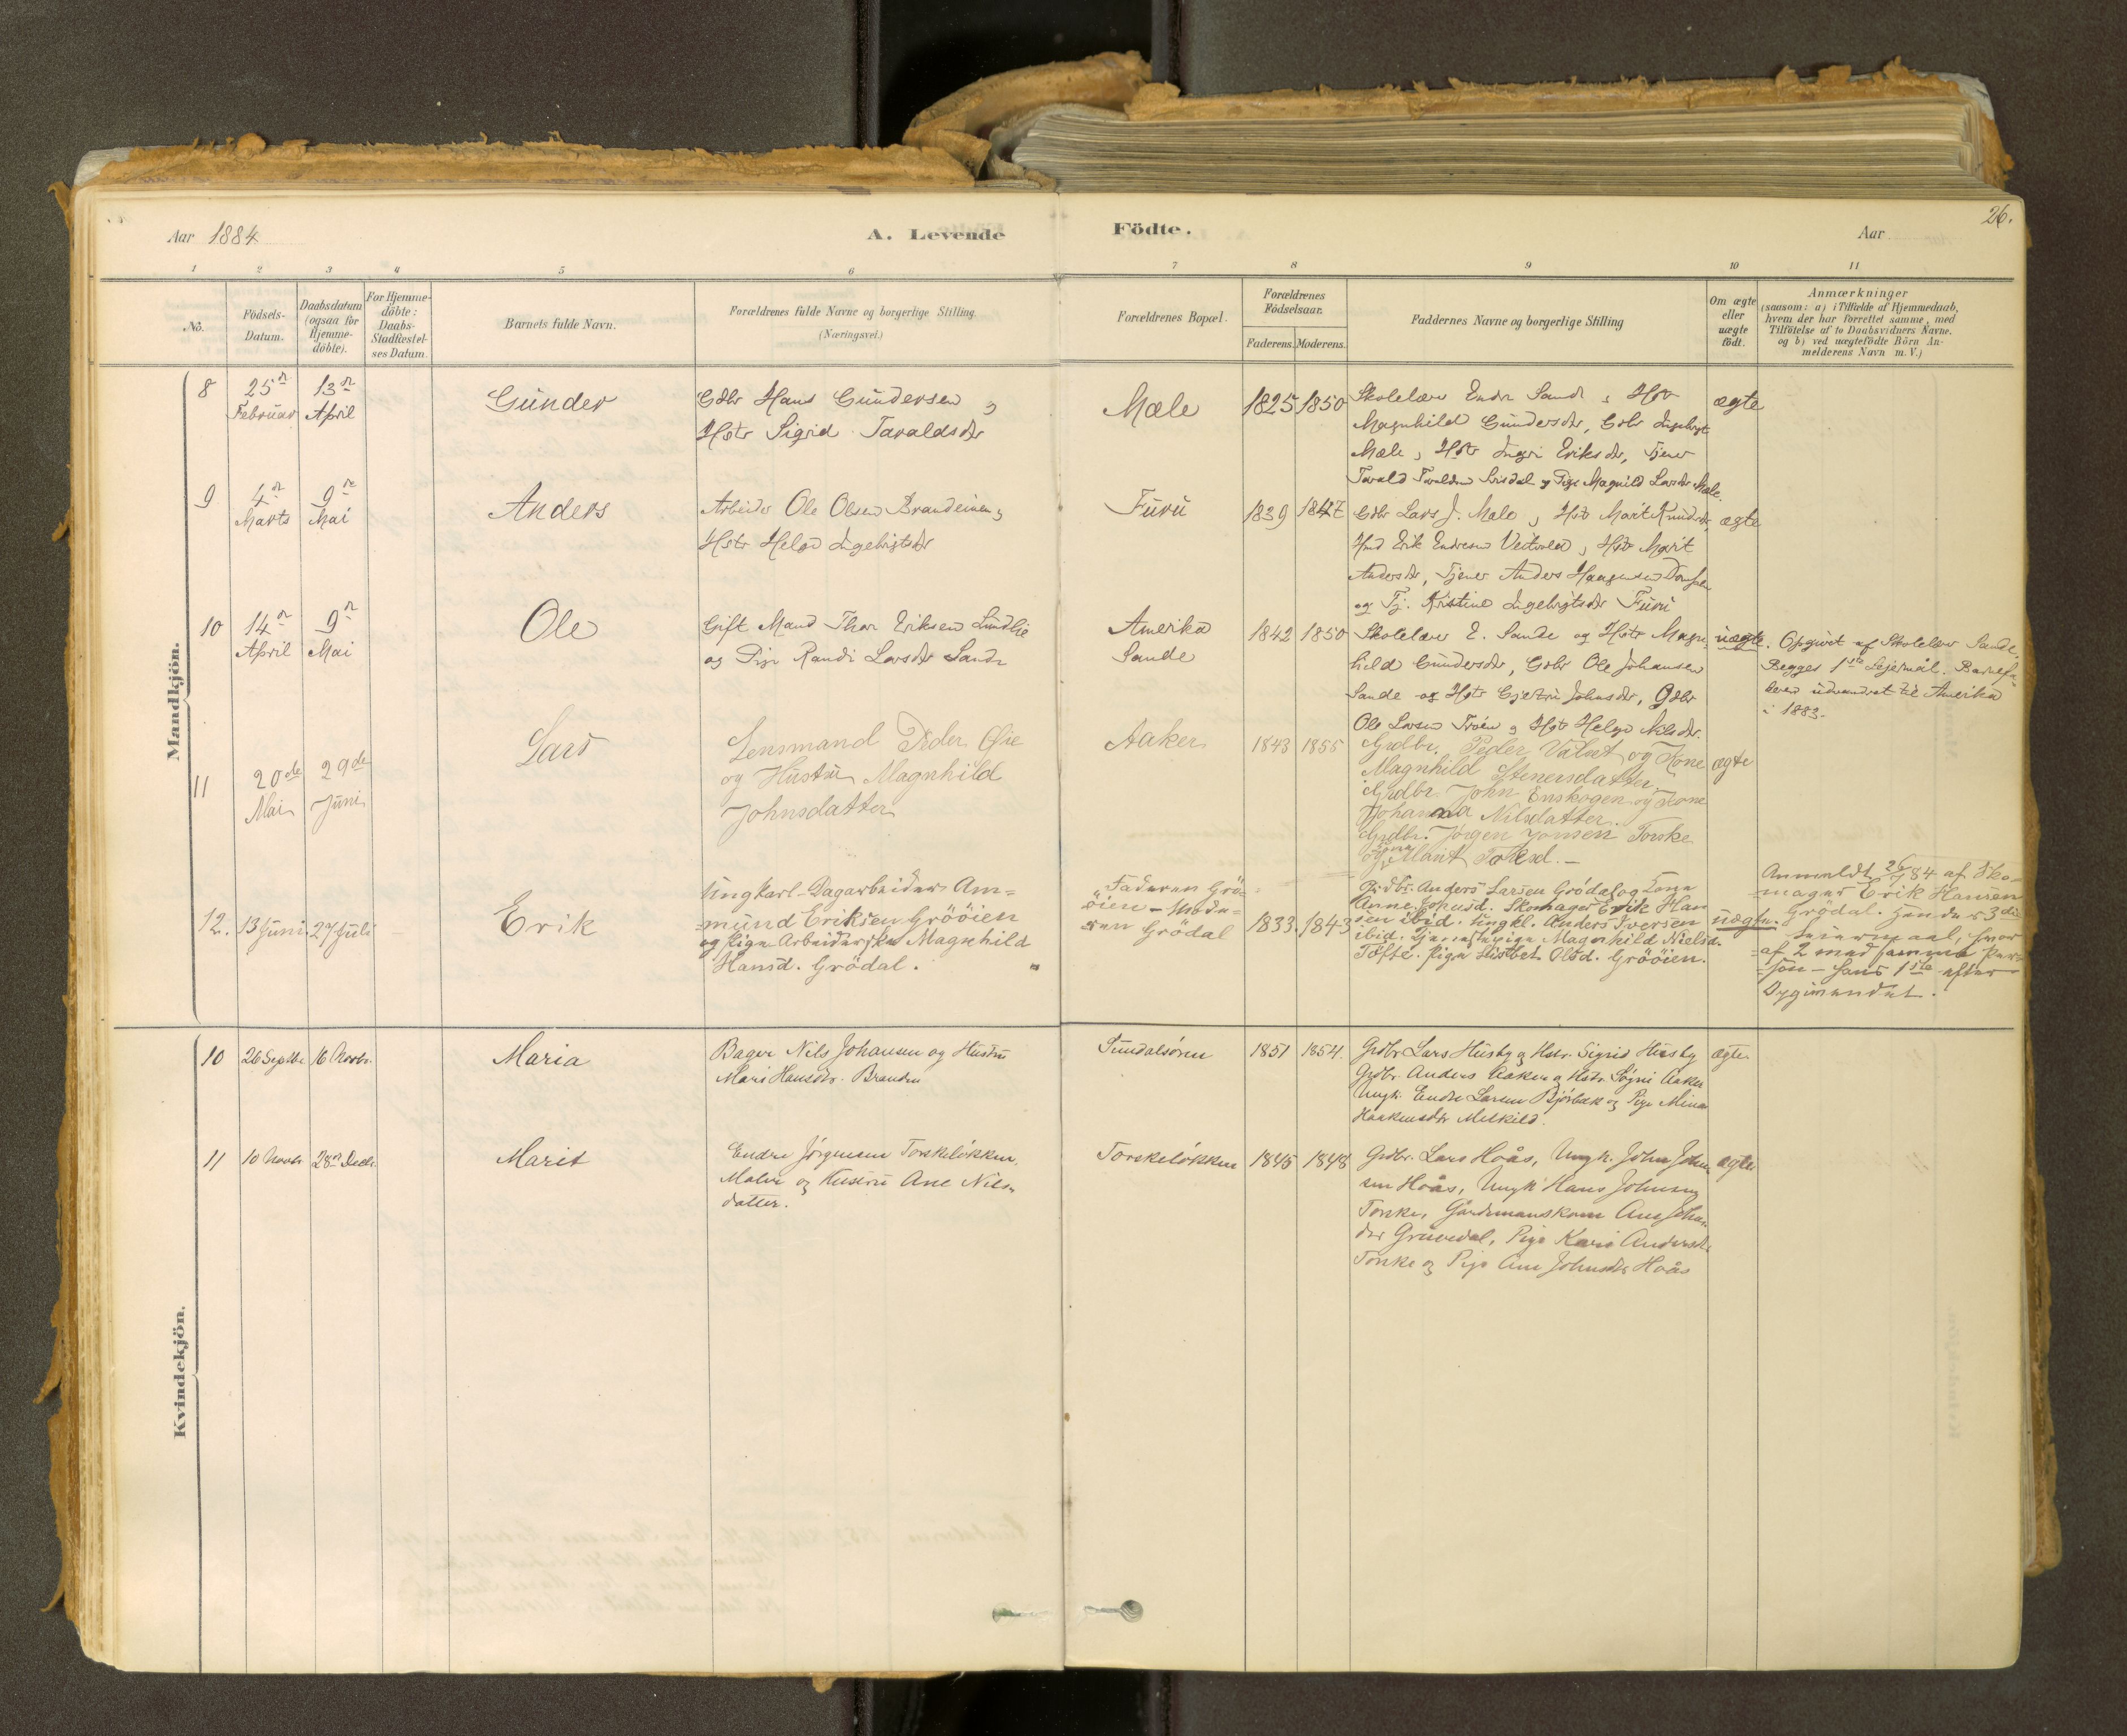 Aar 1884
A. Levende
Födte.
Aar
26.
1 2 3 4 5 6 7 8 9 10 11
No.
Födsels-
Datum.
Daabsdatum
(ogsaa for
Hjemme-
döbte).
For Hjemme-
döbte:
Daabs-
Stadfæstel-
ses Datum.
Barnets fulde Navn.
Forældrenes fulde Navne og borgerlige Stilling.
(Næringsvei.)
Forældrenes Bopæl.
Forældrenes
Födselsaar.
Faderens. Moderens.
Faddernes Navne og borgerlige Stilling
Om ægte
eller
uægte
födt.
Anmærkninger
(saasom: a) i Tilfælde af Hjemmedaab,
hvem der har forrettet samme, med
Tilföielse af to Daabsvidners Navne.
og b) ved uægtefödte Börn An-
melderens Navn m. V.)
Mandkjön.
8
25de
Februar
13de
April
Gunder
Gdbr Hans Gundersen og
Hstr Sigrid Taraldsdr
Mæle
1825 1850
Skolelærer Endr Sande, Hstr
Magnhild Gundersdr, Gdbr Ingebrigt
Mæle, Hstr Ingri Eriksdr, Tjener
og Pige Magnild Larsdr Mæle.
ægte
9
4de
Marts
9de
Mai
Anders
Arbeider Ole Olsen Brandeinen og
Hstr Helga Ingebrigtsdr
Furu
1839 1847
Gdbr Lars J. Male og Hstr Marit Knudsdr,
Hmd Erik Endresen Veitvold, Hstr Marit
Andersdr, Tjener Anders Haagensen
og Tj. Kristine Ingebrigtsdr Furu
ægte
10
14de
April
9de
Mai
Ole
Gift Mand Thor Eriksen Lundlie
og Pige Randi Larsdr Sande
Amerika
Sande
1842 1850
Skolelærer E. Sande og Hstr Magn-
hild Gundersdr, Gdbr Ole Johansen
Sande og Hstr Gjertru Johnsdr, Gdbr
Ole Larsen Troen og Hstr Helga Nilsdr.
uægte.
Opgivet af Skolelær Sande,
Begges 1ste Lejermål. Barnefa-
deren udvandret til Amerika
i 1883.
11
20de
Mai
29de
Juni
Lars
Lensmand Peder Øie
og Hustru Magnhild
Johnsdatter
Aaker
1843 1855
Grdbr. Peder og Kone
Magnhild Stenersdatter.
Grdbr. John Enskogen og Kone
Johanna Nilsdatter.
Grdbr. Jørgen Jonsen Torske
og Kone Marit Tolksd.
ægte
12.
13 Juni
27 Juli
Erik
Ungkarl-Dagarbeider Am-
mund Eriksen Grööien
og Pige Arbeiderske Magnhild
Hansd. Grödal.
Faderen Grö-
öien - Mode-
ren Grödal
1833. 1843
Grdbr. Anders Larsen Grödal og Kone
Anne Johnsd. Skomager Erik Han
sen ibid. Ungkl. Anders Iversen
ibid. Tjenestepige Magnhild Nielsd.
Töfte. Pige Lisbet Olsd. Grööien.
uægte.
Anmeldt 26/7 84 af Sko-
mager Erik Hansen
Grödal. Hendes 3die
Leiermaal, hvor
af 2 med samme Per-
son - hans 1ste efter
Opgivendet.
Kvindekjön.
10
26 Septbr.
16 Novbr.
Maria
Bager Nils Johansen og Hustru
Mari Hansdr. Branden
Sundalsøren
1851 1854.
Grdbr. Lars Husby og Hstr. Sigrid Husby
Grdbr. Anders Aaker og Hstr. Søgni Aaker
Ungk. Endre Larsen Bjørbæk og Pige Mina
Haakensdr Melkild.
ægte
11
10 Novbr
28de Decbr.
Marit
Endre Jørgensen Torskeløkken,
Maler og Hustru Ane Nils-
datter.
Torskeløkken
1845 1848
Grdbr. Lars Hoås, Ungk. John John-
sen Hoås, Ungk Hans Johnsen
Torske, Gårdmandskone Ane Johns-
dtr Gruvedal, Pige Kari Andersdtr
Torske og Pige Ane Johnsdtr Hoås
ægte